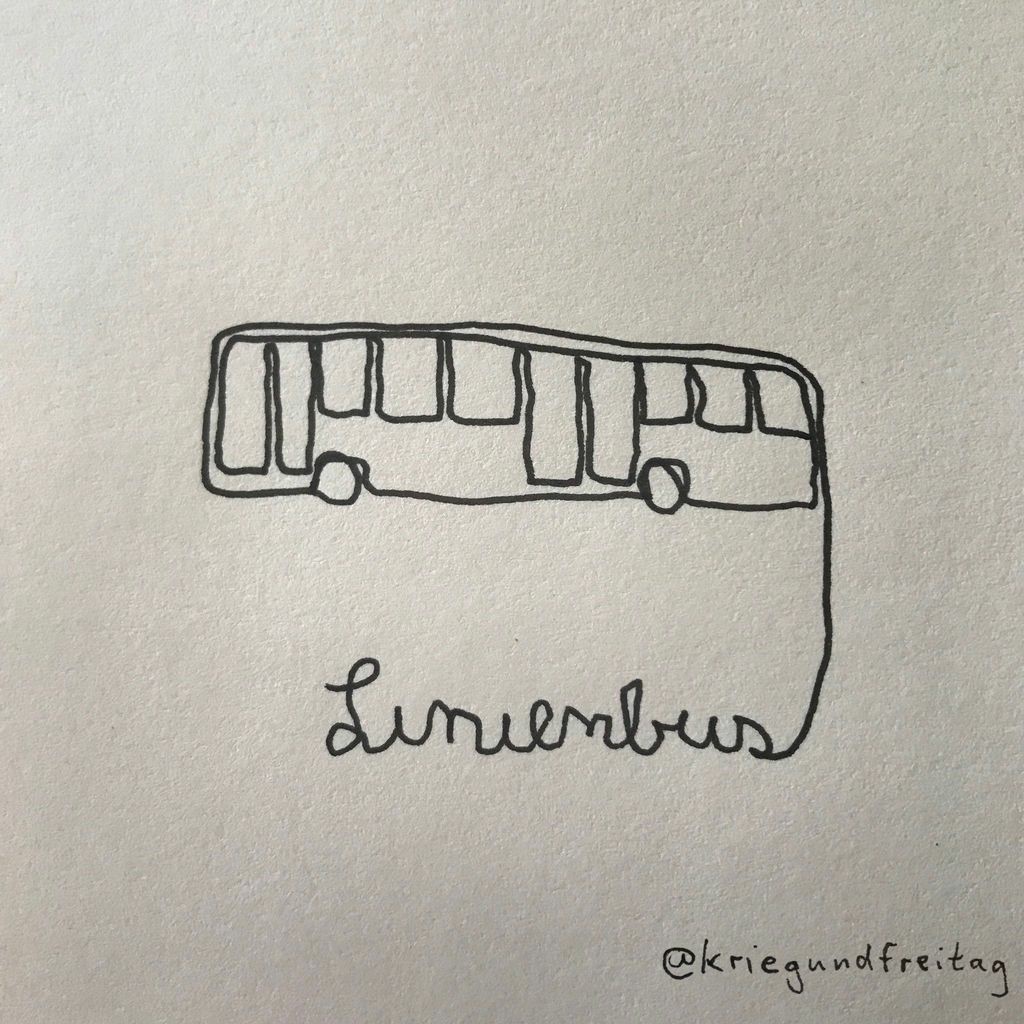 Linienbus
@kriegundfreitag